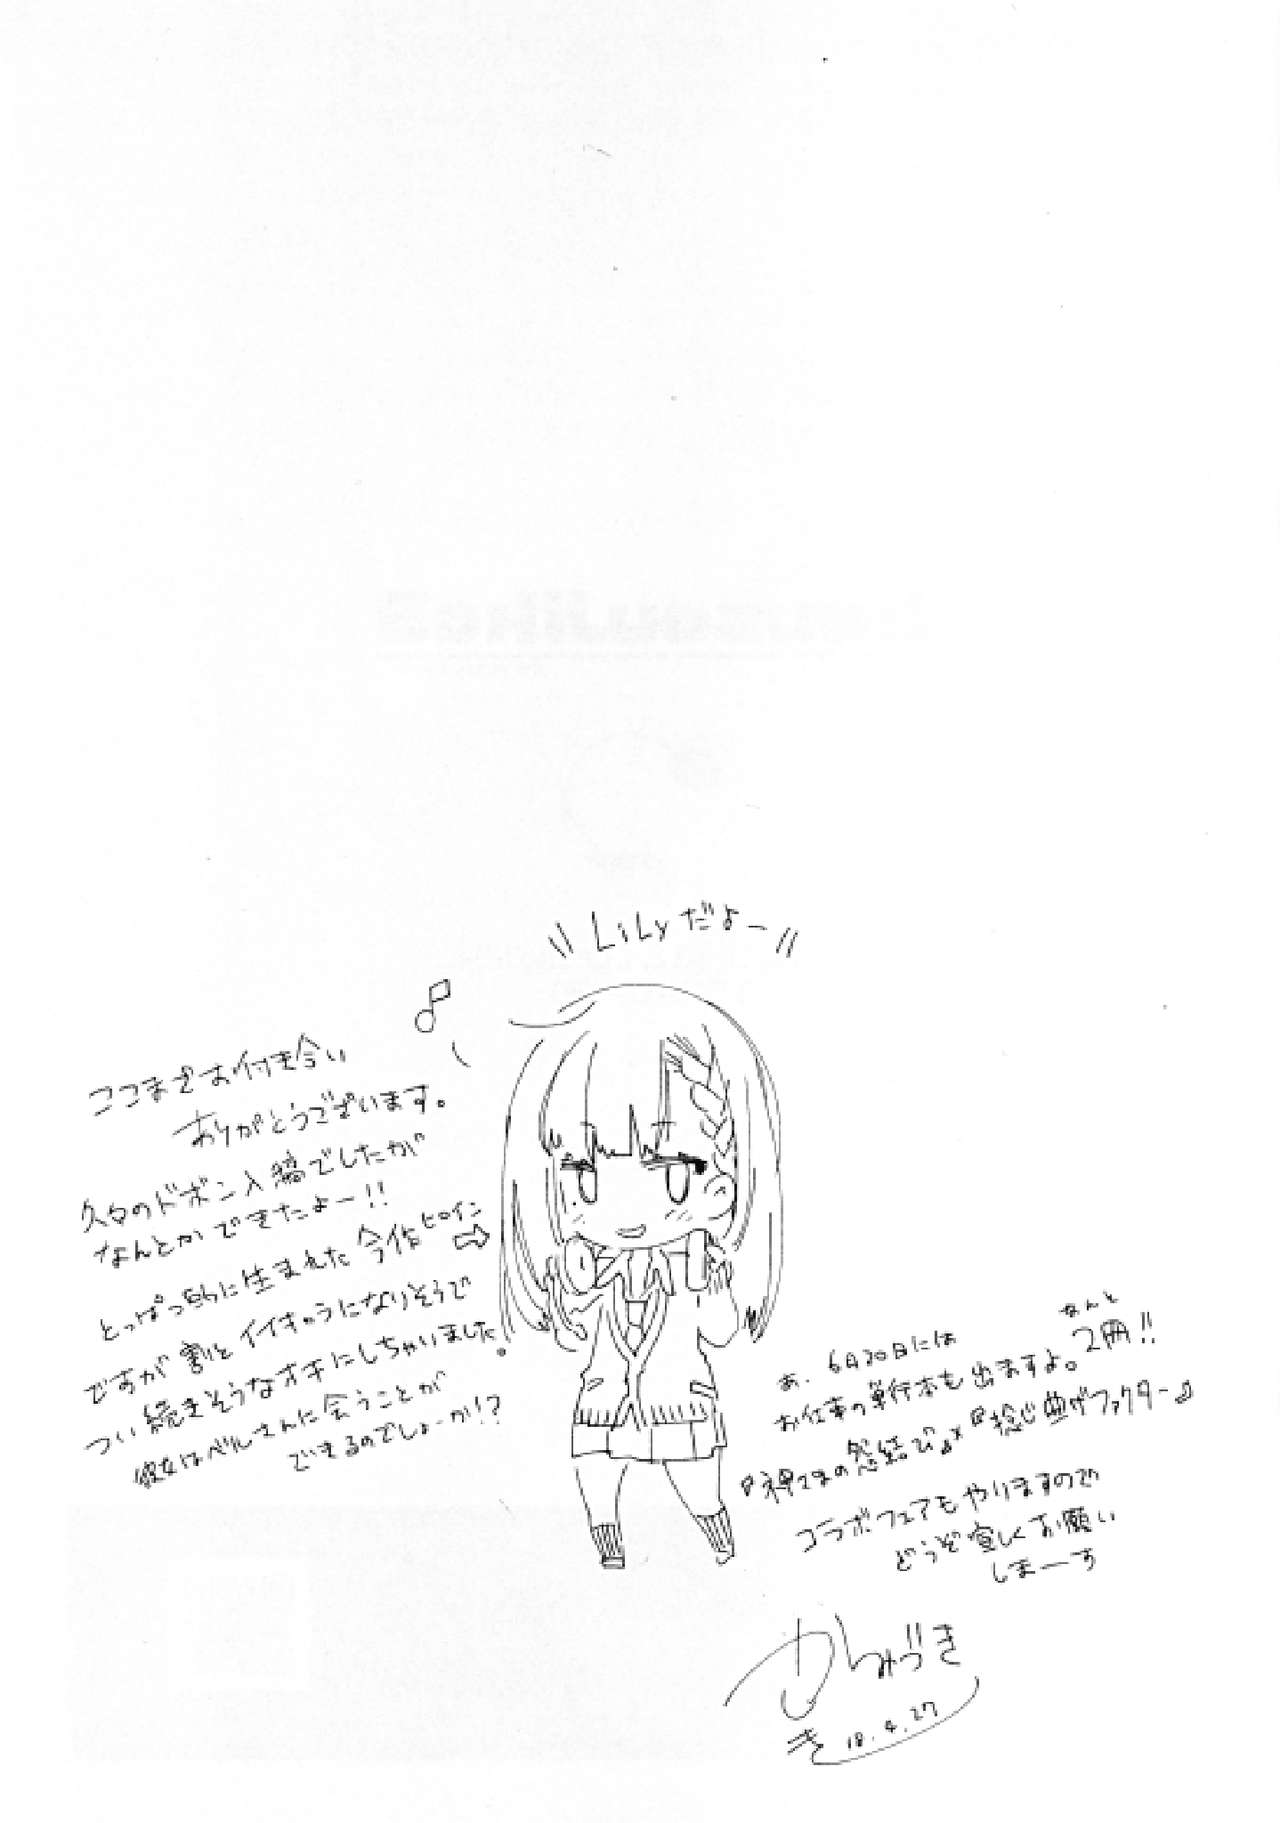 LiLyだよー
ここまでお付き合い
ありがとうございます。
久々のドボン入稿でしたが
なんとかできたよー!!
とっぱつ的に生まれた今作ヒロイン
ですが割とイイキャラになりそうで
つい続きそうなオチにしちゃいました!
彼女はベルさんに会うことが
できるのでしょーか!?
あ、6月30日には
お仕事の単行本も出ますよ。なんと2冊!!
『神さまの怨結び』×『捻じ曲げファクター』
コラボフェアもやりますので
どうぞ宜しくお願い
しまーす
かつみづき
18.4.27